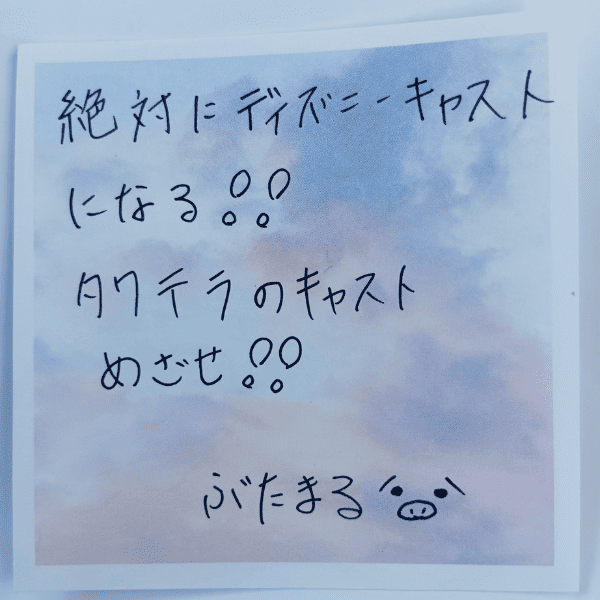 絶対にディズニーキャスト
になる!!
タワテラのキャスト
めざせ!!
ぶたまる